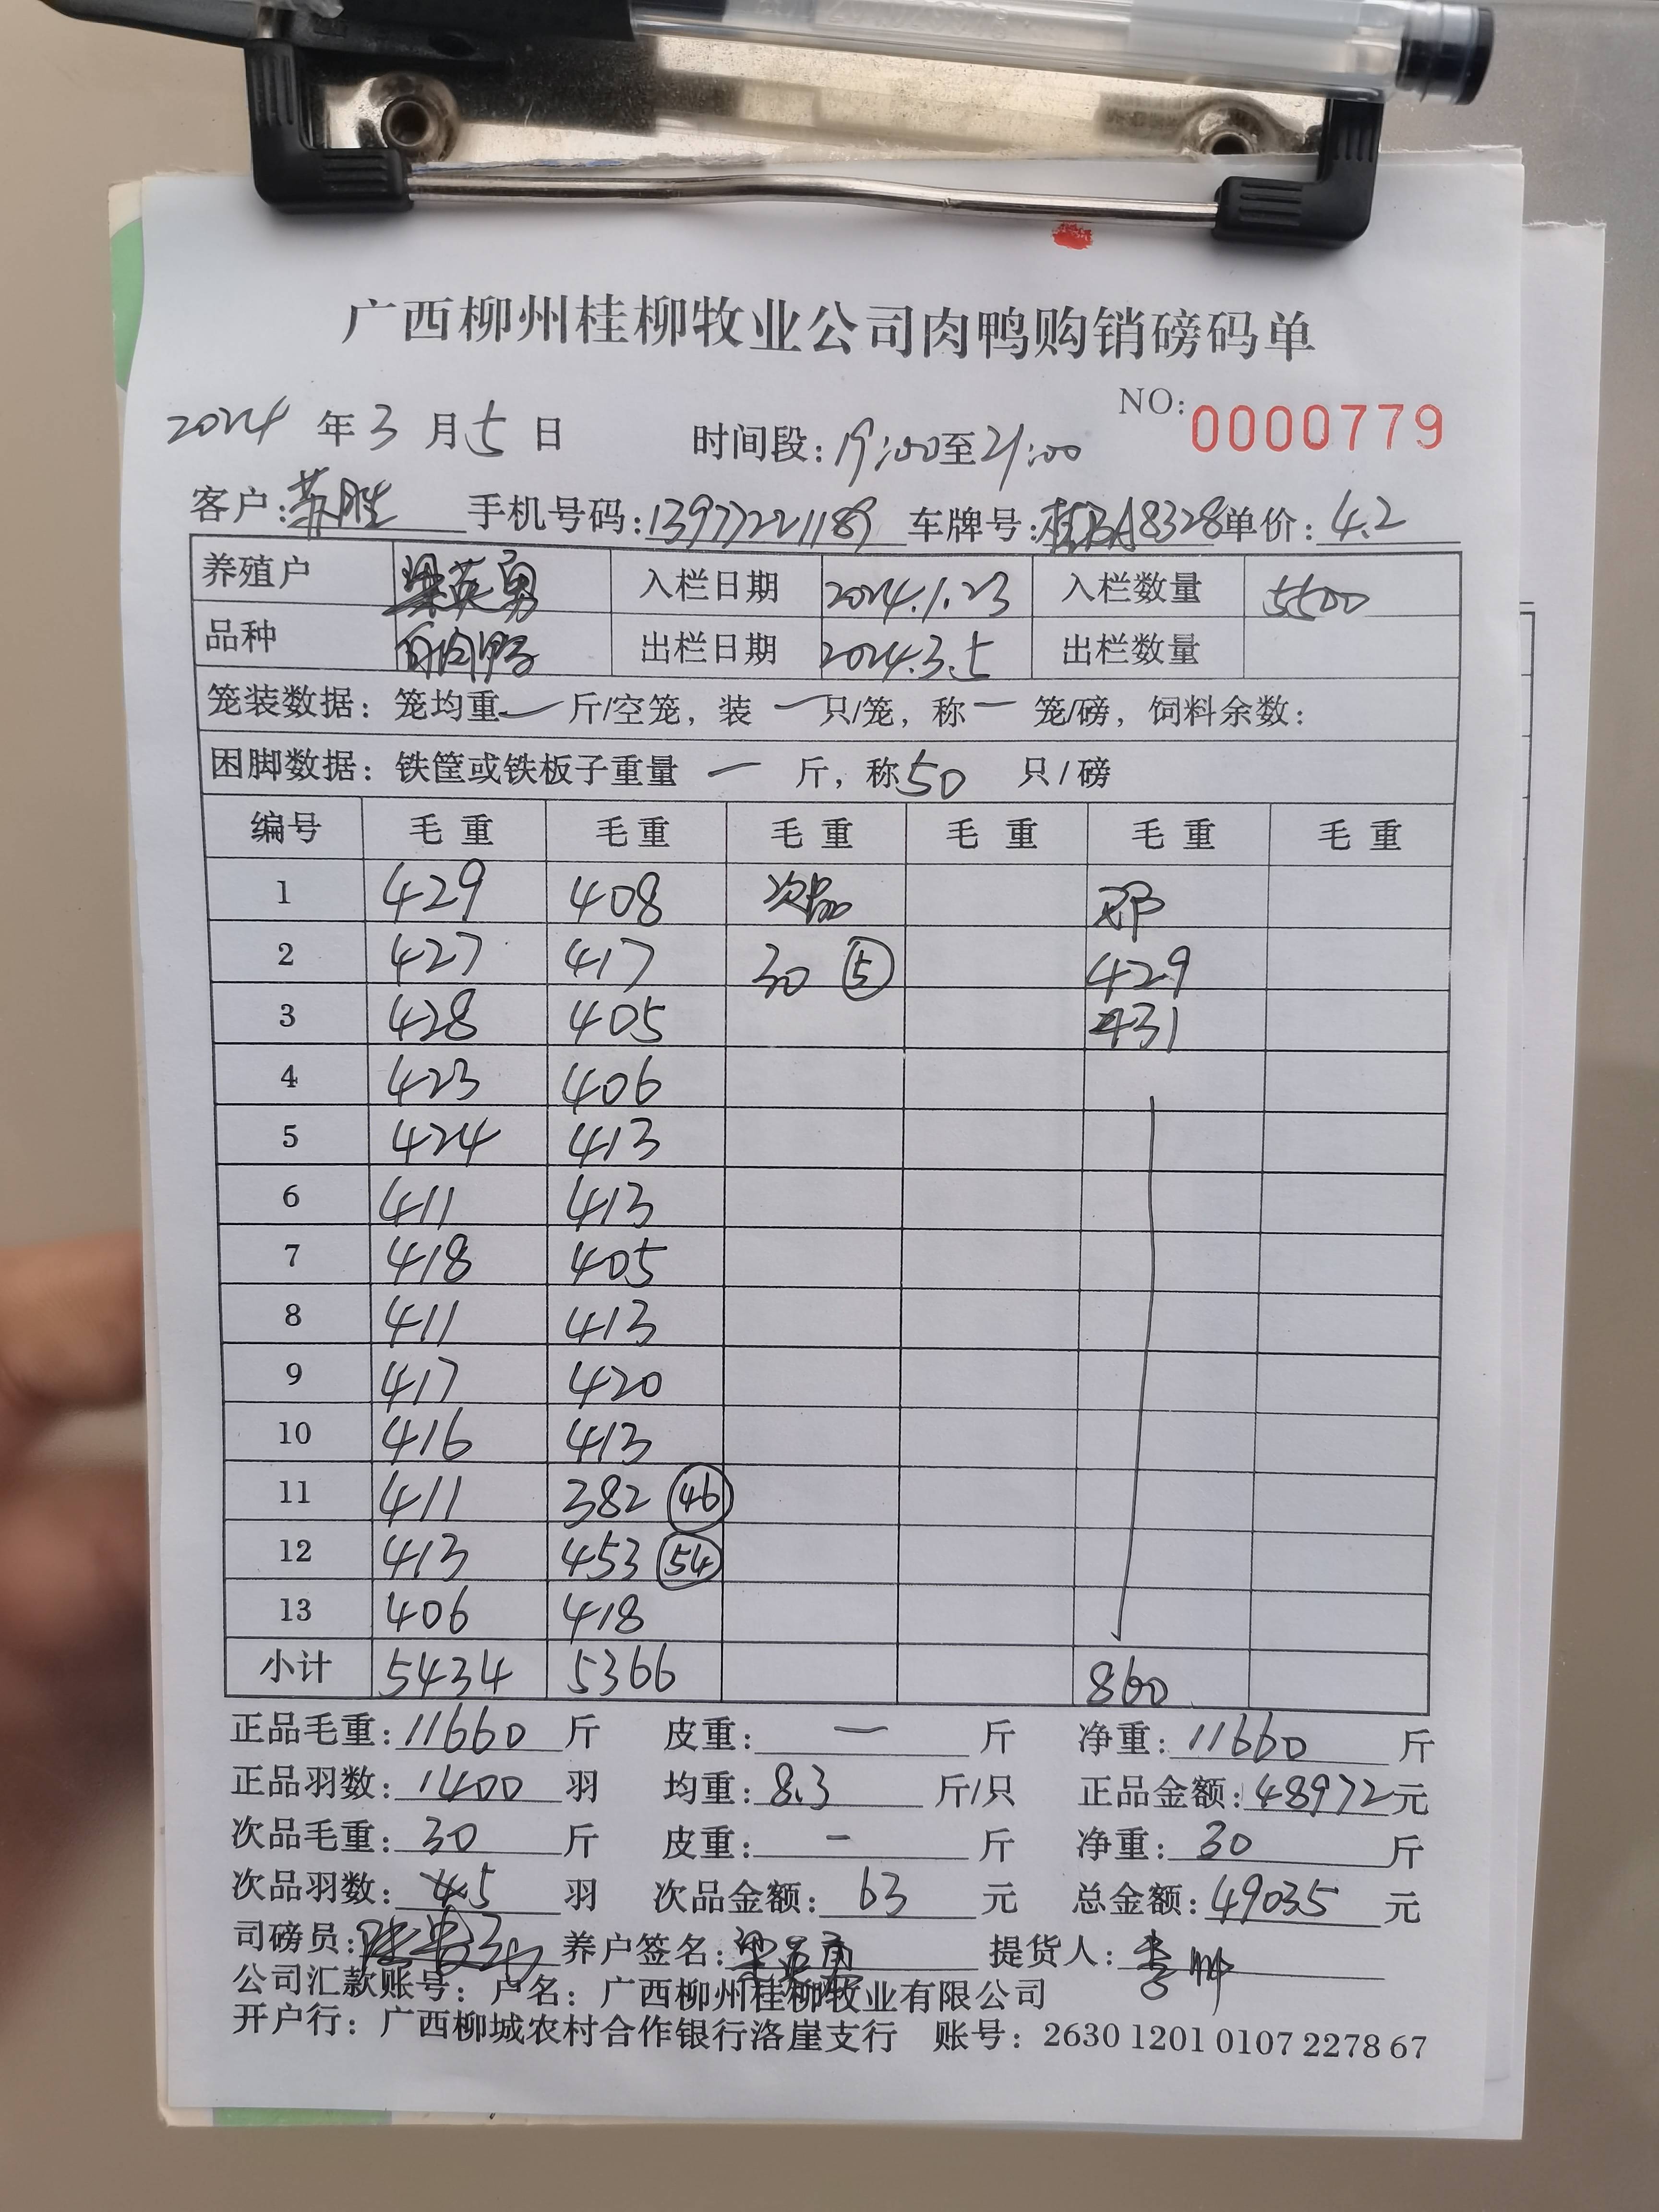 广西柳州桂柳牧业公司肉鸭购销磅码单
NO: 0000779
2024 年 3 月 5 日 时间段: 19:00 至 21:00
客户: 苏胜 手机号码: 13977221189 车牌号: 桂BA8328 单价: 4.2
养殖户 梁英勇 入栏日期 2024.1.23 入栏数量 5500
品种 白肉鸭 出栏日期 2024.3.5 出栏数量
笼装数据: 笼均重 一 斤/空笼, 装 一 只/笼, 称 一 笼/磅, 饲料余数:
困脚数据: 铁筐或铁板子重量 一 斤, 称 50 只/磅
编号 毛重 毛重 毛重 毛重 毛重 毛重
1 429 408 次品 邓
2 427 417 30 ⑤ 429
3 428 405 431
4 423 406
5 424 413
6 411 413
7 418 405
8 411 413
9 417 420
10 416 413
11 411 382 (46)
12 413 453 (54)
13 406 418
小计 5434 5366 860
正品毛重: 11660 斤 皮重: 一 斤 净重: 11660 斤
正品羽数: 1400 羽 均重: 8.3 斤/只 正品金额: 48972 元
次品毛重: 30 斤 皮重: - 斤 净重: 30 斤
次品羽数: 5 羽 次品金额: 63 元 总金额: 49035 元
司磅员: 养户签名: 梁英勇 提货人: 李帅
公司汇款账号: 户名: 广西柳州桂柳牧业有限公司
开户行: 广西柳城农村合作银行洛崖支行 账号: 2630 1201 0107 2278 67